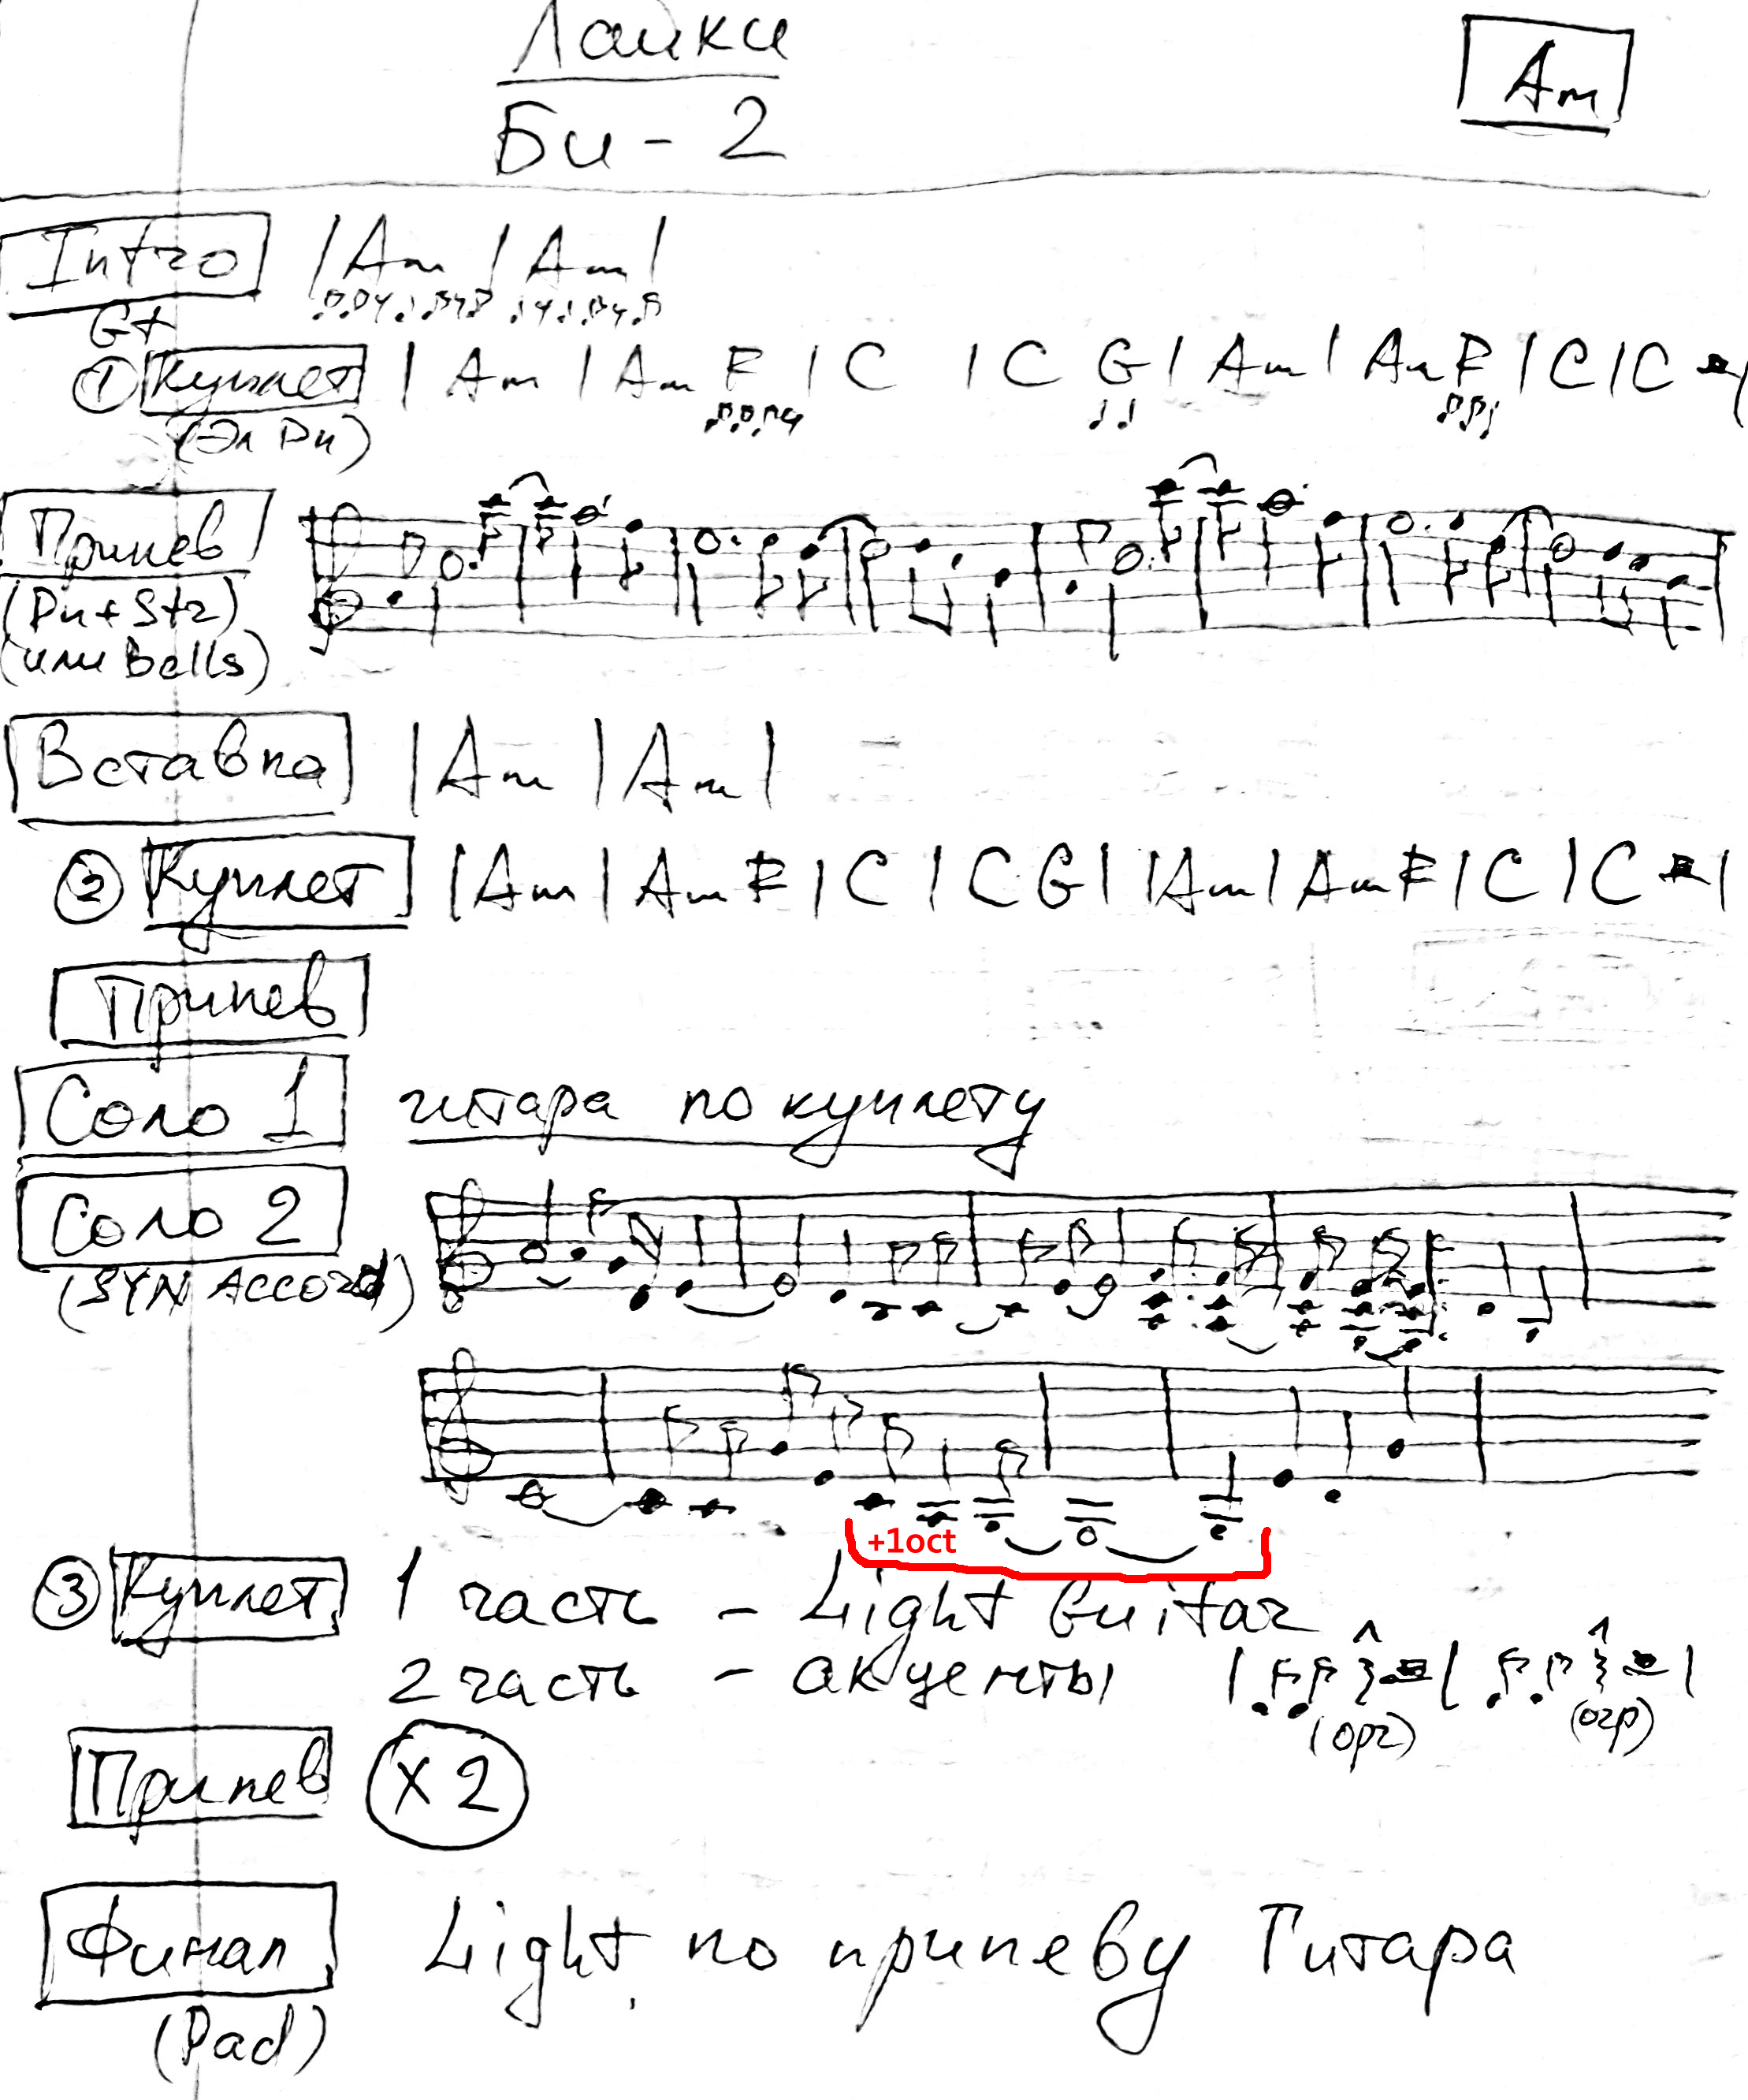 Лайки
Би - 2
Am
Intro | Am | Am |
Gt
① Куплет | Am | Am F | C | C G | Am | Am F | C | C |
(Эл Pn)
Припев
(Pn + Str)
(или Bells)
Вставка | Am | Am |
② Куплет | Am | Am F | C | C G | Am | Am F | C | C |
Припев
Соло 1 гитара по куплету
Соло 2
(SYN ACCORD)
+1oct
③ Куплет 1 часть - Light Guitar
2 часть - акценты
(орг) (огр)
Припев x 2
Финал Light по припеву Гитара
(Pad)